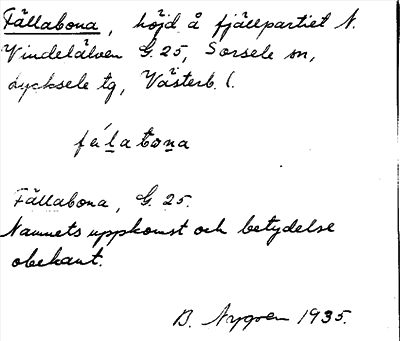 Fällabona, höjd å fjällpartiet N.
Vindelälven G. 25, Sorsele sn,
Lycksele tg, Västerb. l.
fálabona
Fällabona, G. 25.
Namnets uppkomst och betydelse
obekant.
B. Nygren 1935.